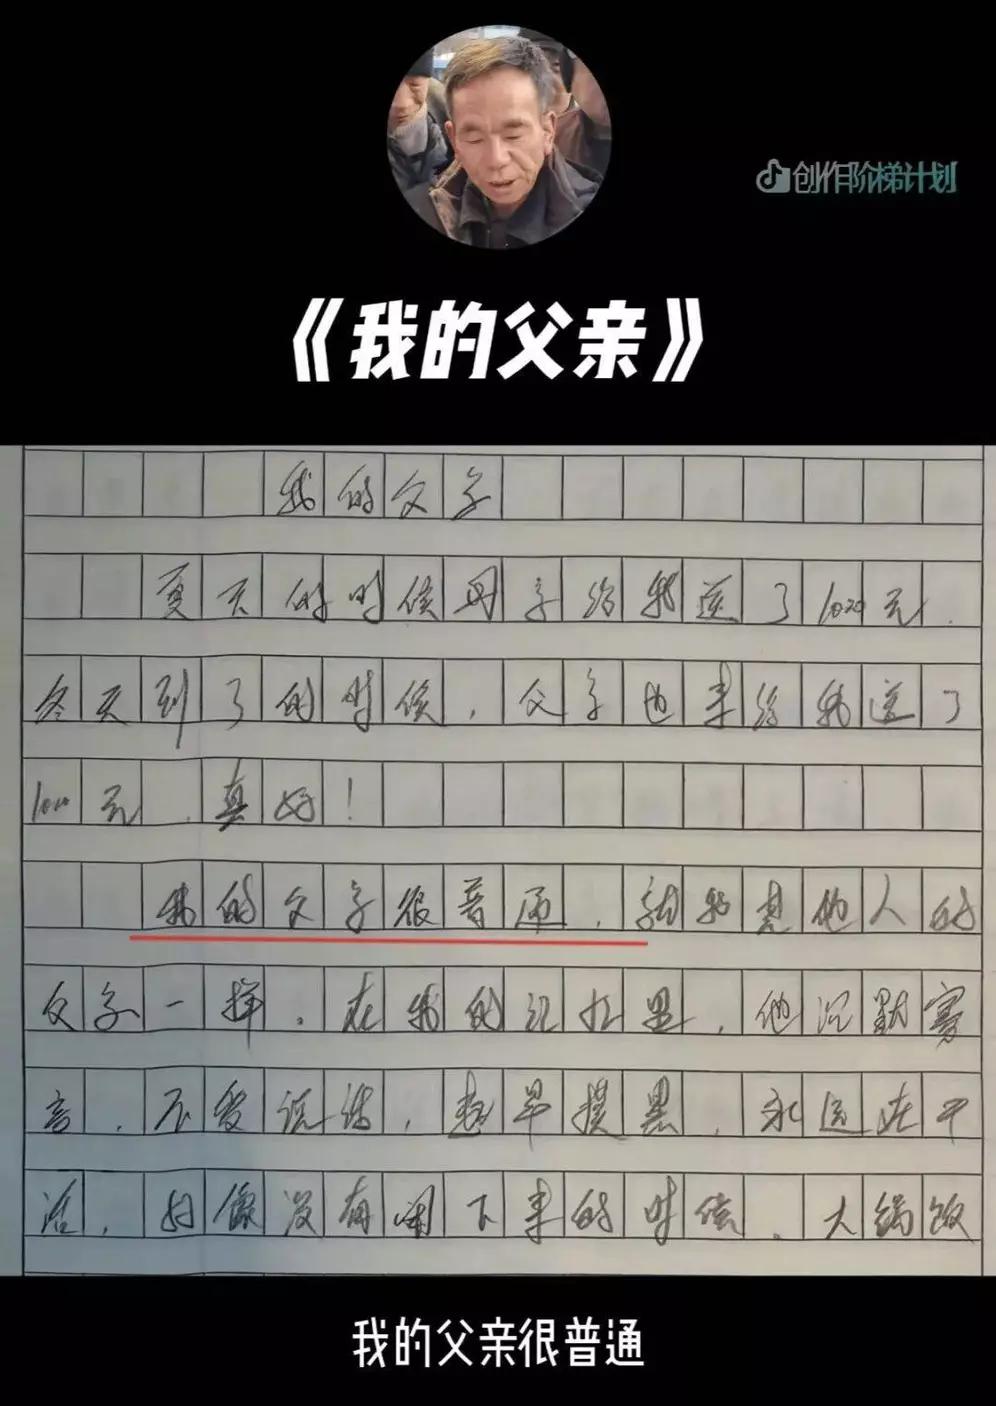 创作阶梯计划
《我的父亲》
我的父亲
夏天的时候母亲给我送了1000元.
冬天到了的时候,父亲也来给我送了
1000元,真好!
我的父亲很普通,就和其他人的
父亲一样.在我的记忆里,他沉默寡
言,不爱说话,起早摸黑,永远在干
活,好像没有闲下来的时候.大锅饭
我的父亲很普通